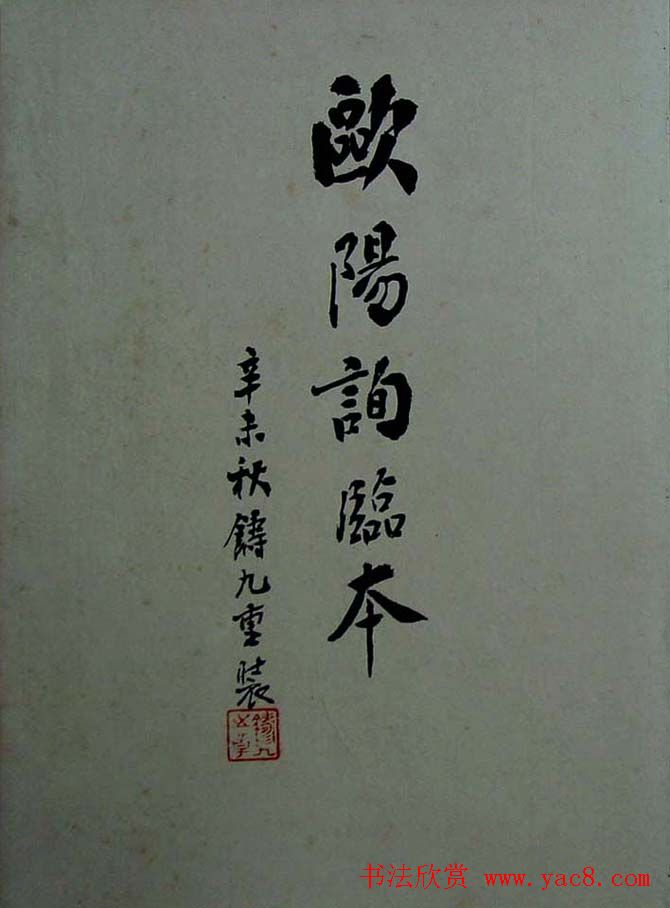 歐陽詢臨本
辛未秋鑄九重裝
书法欣赏 www.yac8.com